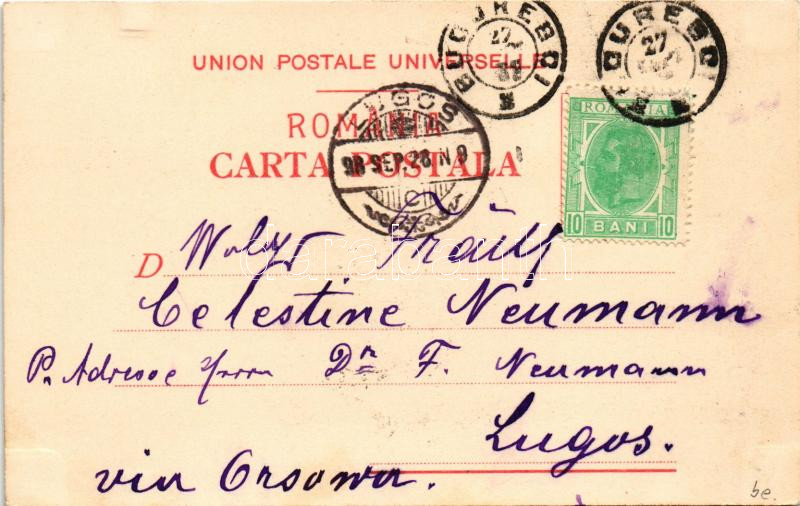 UNION POSTALE UNIVERSELLE
ROMANIA
CARTA POSTALA
BUCURESCI
27
BUCURESCI
27
LUGOS
98 SEP. 28 N 9
C
ROMANIA
10 BANI 10
D Wolgb. Fräul.
Celestine Neumann
P. Adresse Herrn Dr F. Neumann
Lugos.
via Orsowa.
be.
darabanth